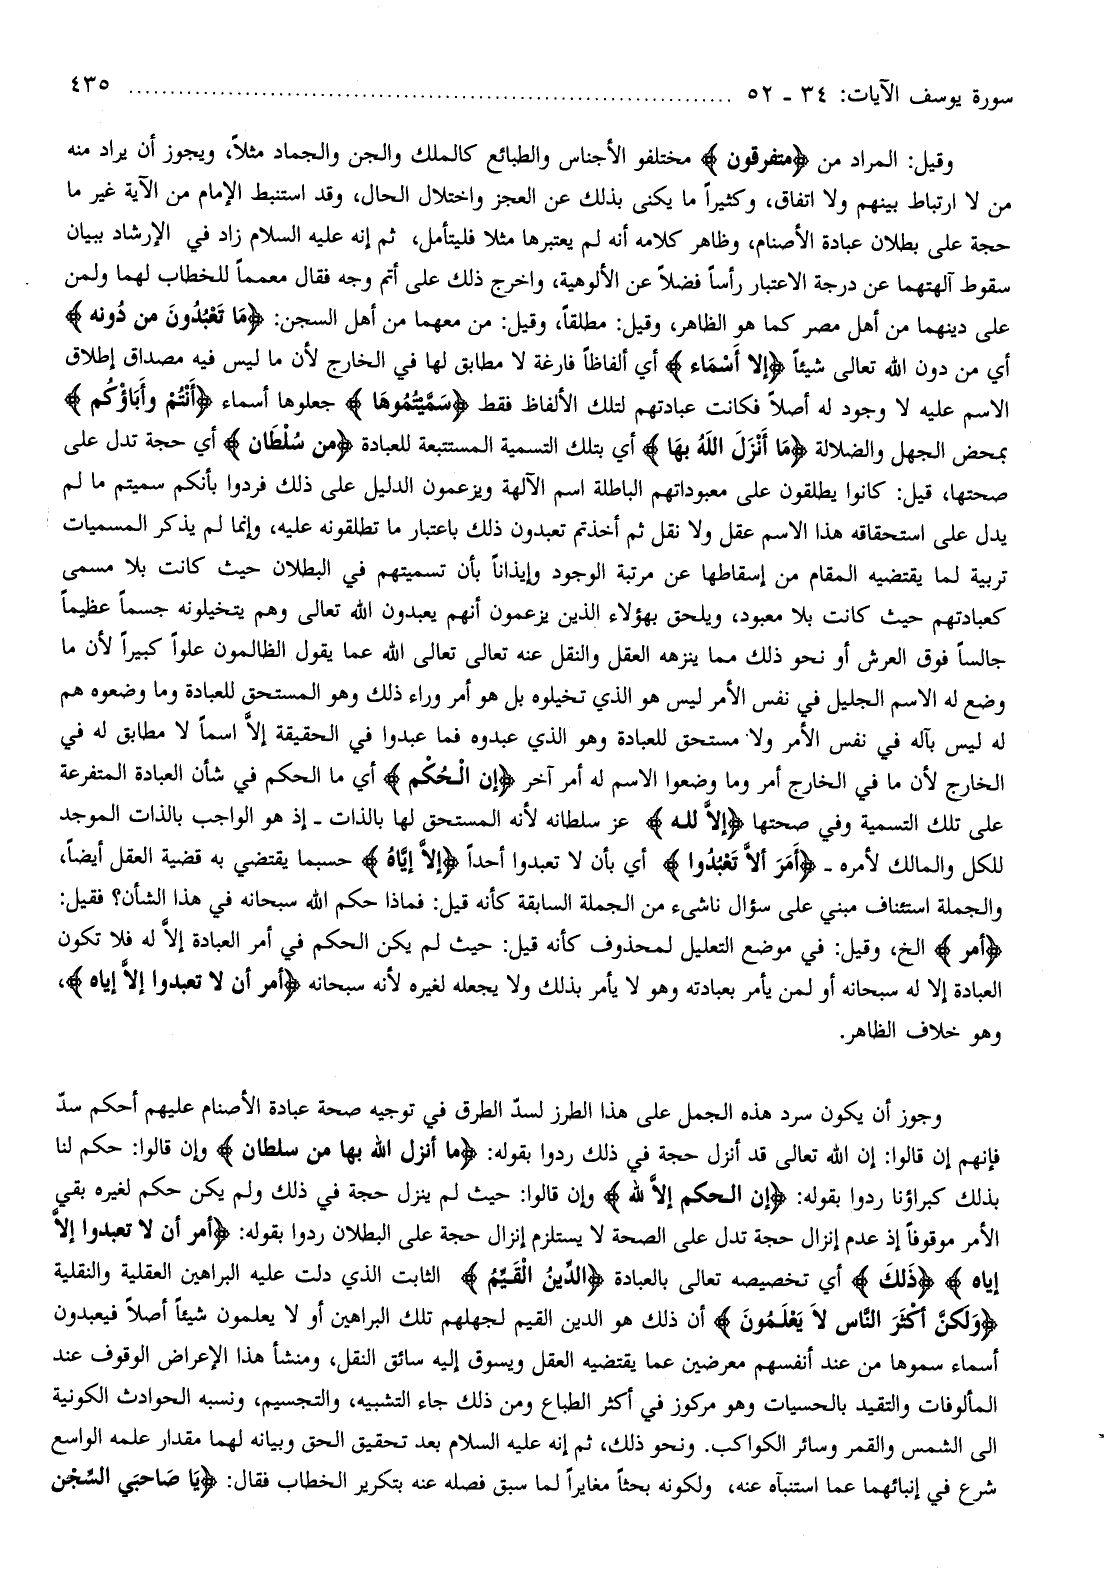 سورة يوسف الآيات: ٣٤ ـ ٥٢ ........................................................ ٤٣٥
وقيل: المراد من ﴿متفرقون﴾ مختلفو الأجناس والطبائع كالملك والجن والجماد مثلاً، ويجوز أن يراد منه
من لا ارتباط بينهم ولا اتفاق، وكثيراً ما يكنى بذلك عن العجز واختلال الحال، وقد استنبط الإمام من الآية غير ما
حجة على بطلان عبادة الأصنام، وظاهر كلامه أنه لم يعتبرها مثلا فليتأمل، ثم إنه عليه السلام زاد في الإرشاد ببيان
سقوط آلهتهما عن درجة الاعتبار رأساً فضلاً عن الألوهية، واخرج ذلك على أتم وجه فقال معمماً للخطاب لهما ولمن
على دينهما من أهل مصر كما هو الظاهر، وقيل: مطلقاً، وقيل: من معهما من أهل السجن: ﴿مَا تَعْبُدُونَ من دُونه﴾
أي من دون الله تعالى شيئاً ﴿إلا أَسْمَاء﴾ أي ألفاظاً فارغة لا مطابق لها في الخارج لأن ما ليس فيه مصداق إطلاق
الاسم عليه لا وجود له أصلاً فكانت عبادتهم لتلك الألفاظ فقط ﴿سَمَّيْتُمُوهَا﴾ جعلوها أسماء ﴿أَنْتُمْ وأَبَاؤْكُم﴾
بمحض الجهل والضلالة ﴿مَا أَنْزَلَ اللَهُ بهَا﴾ أي بتلك التسمية المستتبعة للعبادة ﴿من سُلْطَان﴾ أي حجة تدل على
صحتها، قيل: كانوا يطلقون على معبوداتهم الباطلة اسم الآلهة ويزعمون الدليل على ذلك فردوا بأنكم سميتم ما لم
يدل على استحقاقه هذا الاسم عقل ولا نقل ثم أخذتم تعبدون ذلك باعتبار ما تطلقونه عليه، وإنما لم يذكر المسميات
تربية لما يقتضيه المقام من إسقاطها عن مرتبة الوجود وإيذاناً بأن تسميتهم في البطلان حيث كانت بلا مسمى
كعبادتهم حيث كانت بلا معبود، ويلحق بهؤلاء الذين يزعمون أنهم يعبدون الله تعالى وهم يتخيلونه جسماً عظيماً
جالساً فوق العرش أو نحو ذلك مما ينزهه العقل والنقل عنه تعالى تعالى الله عما يقول الظالمون علواً كبيراً لأن ما
وضع له الاسم الجليل في نفس الأمر ليس هو الذي تخيلوه بل هو أمر وراء ذلك وهو المستحق للعبادة وما وضعوه هم
له ليس بآله في نفس الأمر ولا مستحق للعبادة وهو الذي عبدوه فما عبدوا في الحقيقة إلاَّ اسماً لا مطابق له في
الخارج لأن ما في الخارج أمر وما وضعوا الاسم له أمر آخر ﴿إن الْحُكْم﴾ أي ما الحكم في شأن العبادة المتفرعة
على تلك التسمية وفي صحتها ﴿إلاَّ لله﴾ عز سلطانه لأنه المستحق لها بالذات ـ إذ هو الواجب بالذات الموجد
للكل والمالك لأمره ـ ﴿أَمَرَ ألاَّ تَعْبُدُوا﴾ أي بأن لا تعبدوا أحداً ﴿إلاَّ إيَّاهُ﴾ حسبما يقتضي به قضية العقل أيضاً،
والجملة استئناف مبني على سؤال ناشىء من الجملة السابقة كأنه قيل: فماذا حكم الله سبحانه في هذا الشأن؟ فقيل:
﴿أمر﴾ الخ، وقيل: في موضع التعليل لمحذوف كأنه قيل: حيث لم يكن الحكم في أمر العبادة إلاَّ له فلا تكون
العبادة إلا له سبحانه أو لمن يأمر بعبادته وهو لا يأمر بذلك ولا يجعله لغيره لأنه سبحانه ﴿أمر أن لا تعبدوا إلاَّ إياه﴾،
وهو خلاف الظاهر.
وجوز أن يكون سرد هذه الجمل على هذا الطرز لسدّ الطرق في توجيه صحة عبادة الأصنام عليهم أحكم سدّ
فإنهم إن قالوا: إن الله تعالى قد أنزل حجة في ذلك ردوا بقوله: ﴿ما أنزل الله بها من سلطان﴾ وإن قالوا: حكم لنا
بذلك كبراؤنا ردوا بقوله: ﴿إن الحكم إلاَّ لله﴾ وإن قالوا: حيث لم ينزل حجة في ذلك ولم يكن حكم لغيره بقي
الأمر موقوفاً إذ عدم إنزال حجة تدل على الصحة لا يستلزم إنزال حجة على البطلان ردوا بقوله: ﴿أمر أن لا تعبدوا إلاَّ
إياه﴾ ﴿ذَلكَ﴾ أي تخصيصه تعالى بالعبادة ﴿الدِّينُ الْقَيِّمُ﴾ الثابت الذي دلت عليه البراهين العقلية والنقلية
﴿وَلَكنَّ أَكْثَرَ النَّاس لاَ يَعْلَمُونَ﴾ أن ذلك هو الدين القيم لجهلهم تلك البراهين أو لا يعلمون شيئاً أصلاً فيعبدون
أسماء سموها من عند أنفسهم معرضين عما يقتضيه العقل ويسوق إليه سائق النقل، ومنشأ هذا الإعراض الوقوف عند
المألوفات والتقيد بالحسيات وهو مركوز في أكثر الطباع ومن ذلك جاء التشبيه، والتجسيم، ونسبه الحوادث الكونية
الى الشمس والقمر وسائر الكواكب. ونحو ذلك، ثم إنه عليه السلام بعد تحقيق الحق وبيانه لهما مقدار علمه الواسع
شرع في إنبائهما عما استنبآه عنه، ولكونه بحثاً مغايراً لما سبق فصله عنه بتكرير الخطاب فقال: ﴿يَا صَاحبَي السِّجْن